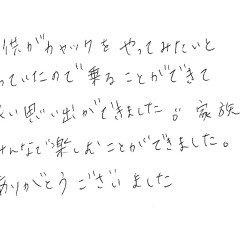 供がカヤックをやってみたいと
っていたので乗ることができて
い思い出ができました。家族
んなで楽しむことができました。
ありがとうございました